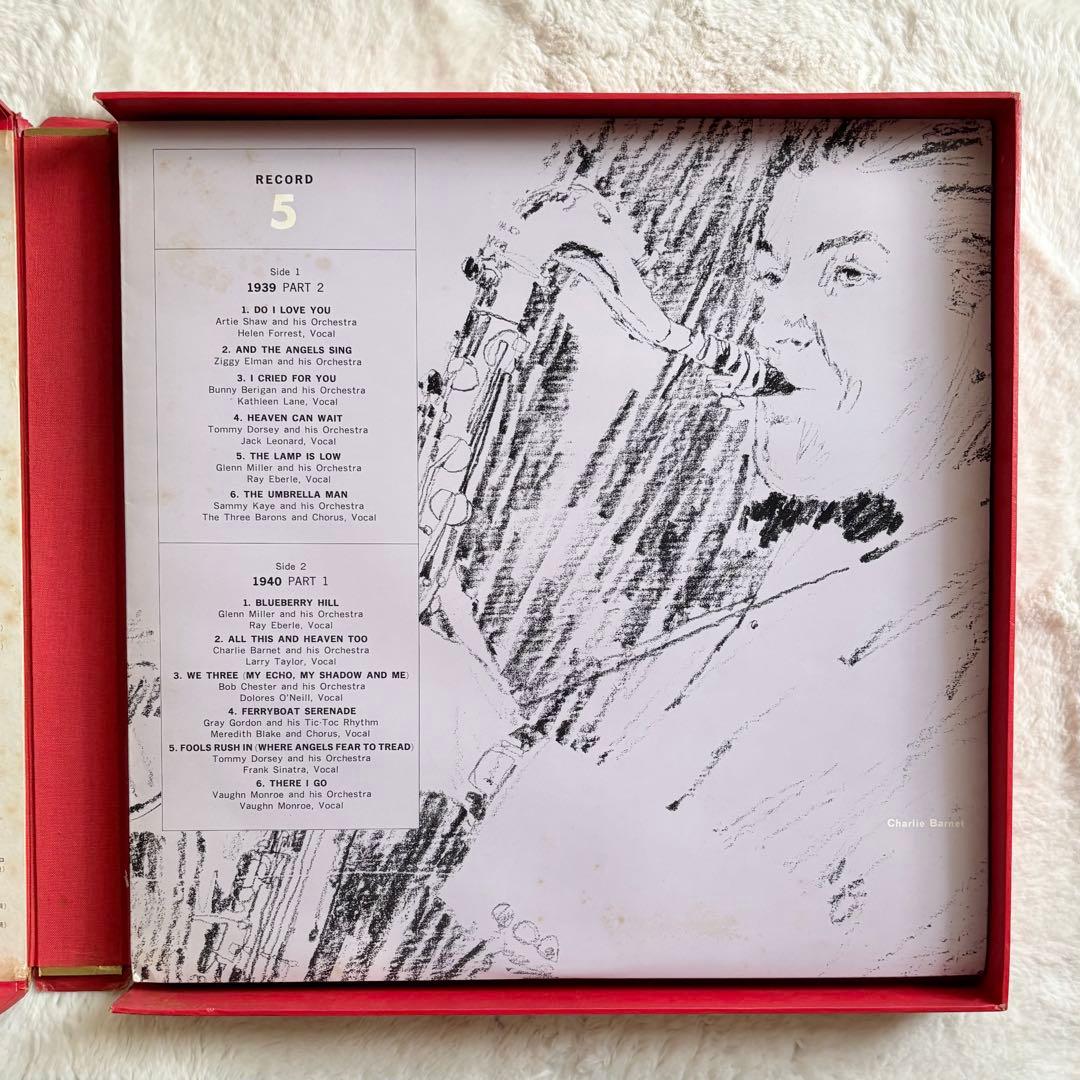 RECORD
5
Side 1
1939 PART 2
1. DO I LOVE YOU
Artie Shaw and his Orchestra
Helen Forrest, Vocal
2. AND THE ANGELS SING
Ziggy Elman and his Orchestra
3. I CRIED FOR YOU
Bunny Berigan and his Orchestra
Kathleen Lane, Vocal
4. HEAVEN CAN WAIT
Tommy Dorsey and his Orchestra
Jack Leonard, Vocal
5. THE LAMP IS LOW
Glenn Miller and his Orchestra
Ray Eberle, Vocal
6. THE UMBRELLA MAN
Sammy Kaye and his Orchestra
The Three Barons and Chorus, Vocal
Side 2
1940 PART 1
1. BLUEBERRY HILL
Glenn Miller and his Orchestra
Ray Eberle, Vocal
2. ALL THIS AND HEAVEN TOO
Charlie Barnet and his Orchestra
Larry Taylor, Vocal
3. WE THREE (MY ECHO, MY SHADOW AND ME)
Bob Chester and his Orchestra
Dolores O'Neill, Vocal
4. FERRYBOAT SERENADE
Gray Gordon and his Tic-Toc Rhythm
Meredith Blake and Chorus, Vocal
5. FOOLS RUSH IN (WHERE ANGELS FEAR TO TREAD)
Tommy Dorsey and his Orchestra
Frank Sinatra, Vocal
6. THERE I GO
Vaughn Monroe and his Orchestra
Vaughn Monroe, Vocal
Charlie Barnet